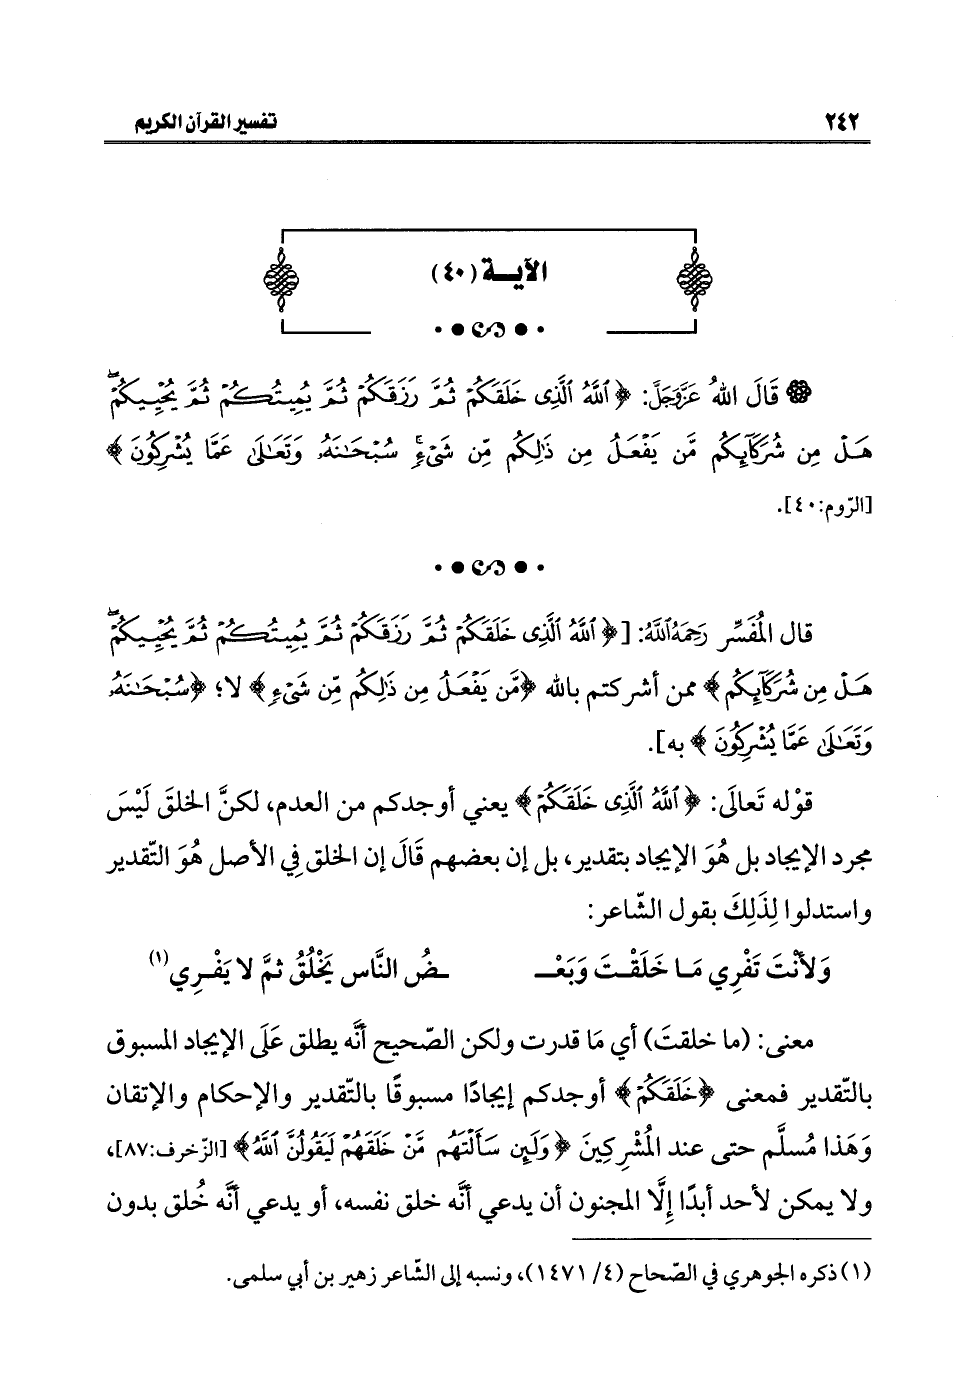 ٢٤٢
تفسير القرآن الكريم
الآيــة (٤٠)
قَالَ اللهُ عَزَّوَجَلَّ: ﴿ ٱللَّهُ ٱلَّذِى خَلَقَكُمْ ثُمَّ رَزَقَكُمْ ثُمَّ يُمِيتُكُمْ ثُمَّ يُحْيِيكُمْ ۖ
هَلْ مِن شُرَكَآئِكُم مَّن يَفْعَلُ مِن ذَٰلِكُم مِّن شَىْءٍ ۚ سُبْحَـٰنَهُۥ وَتَعَـٰلَىٰ عَمَّا يُشْرِكُونَ ﴾
[الرّوم:٤٠].
قال المُفَسِّر رَحِمَهُ اللَّهُ: [﴿ ٱللَّهُ ٱلَّذِى خَلَقَكُمْ ثُمَّ رَزَقَكُمْ ثُمَّ يُمِيتُكُمْ ثُمَّ يُحْيِيكُمْ ۖ
هَلْ مِن شُرَكَآئِكُم ﴾ ممن أشركتم بالله ﴿مَّن يَفْعَلُ مِن ذَٰلِكُم مِّن شَىْءٍ﴾ لا؛ ﴿سُبْحَـٰنَهُۥ
وَتَعَـٰلَىٰ عَمَّا يُشْرِكُونَ ﴾ به].
قوْله تَعالَى: ﴿ ٱللَّهُ ٱلَّذِى خَلَقَكُمْ ﴾ يعني أوجدكم من العدم، لكنَّ الخلقَ لَيْسَ
مجرد الإيجاد بل هُوَ الإيجاد بتقدير، بل إن بعضهم قَالَ إن الخلق فِي الأصل هُوَ التّقدير
واستدلوا لِذَلِكَ بقول الشّاعر:
وَلأَنْتَ تَفْرِي مَـا خَلَقْـتَ وَبَعْـ ـضُ النَّاس يَخْلُقُ ثمَّ لا يَفْـرِي(١)
معنى: (ما خلقتَ) أي مَا قدرت ولكن الصّحيح أنَّه يطلق عَلَى الإيجاد المسبوق
بالتّقدير فمعنى ﴿خَلَقَكُمْ﴾ أوجدكم إيجادًا مسبوقًا بالتّقدير والإحكام والإتقان
وَهَذا مُسلَّم حتى عند المُشْرِكِينَ ﴿وَلَئِن سَأَلْتَهُم مَّنْ خَلَقَهُمْ لَيَقُولُنَّ ٱللَّهُ﴾ [الزّخرف:٨٧]،
ولا يمكن لأحد أبدًا إِلَّا المجنون أن يدعي أنَّه خلق نفسه، أو يدعي أنَّه خُلق بدون
(١) ذكره الجوهري في الصّحاح (٤/ ١٤٧١)، ونسبه إلى الشّاعر زهير بن أبي سلمى.